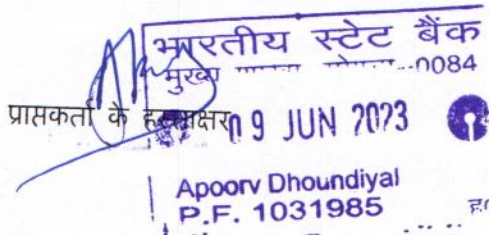 भारतीय स्टेट बैंक
मुख्य 0084
प्राप्तकर्ता के हस्ताक्षर 09 JUN 2023
Apoorv Dhoundiyal
P.F. 1031985